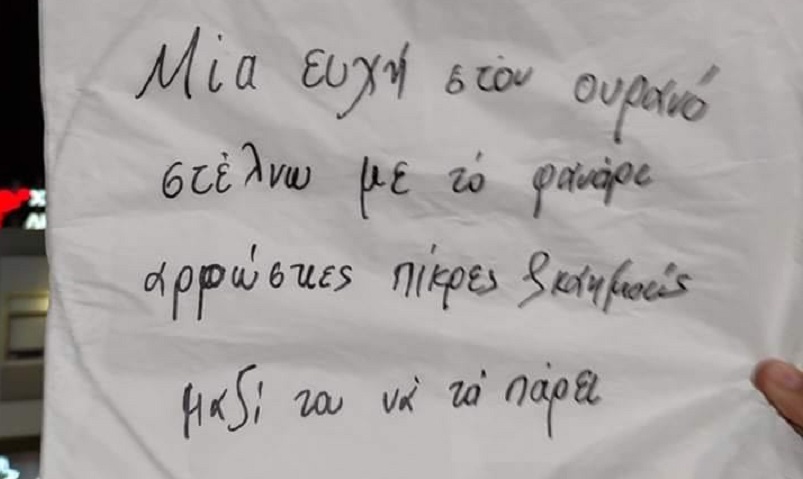 Μία ευχή στόν ουρανό
στέλνω με τό φανάρι
αρρώστιες πίκρες & καημούς
μαζί του νά τά πάρει